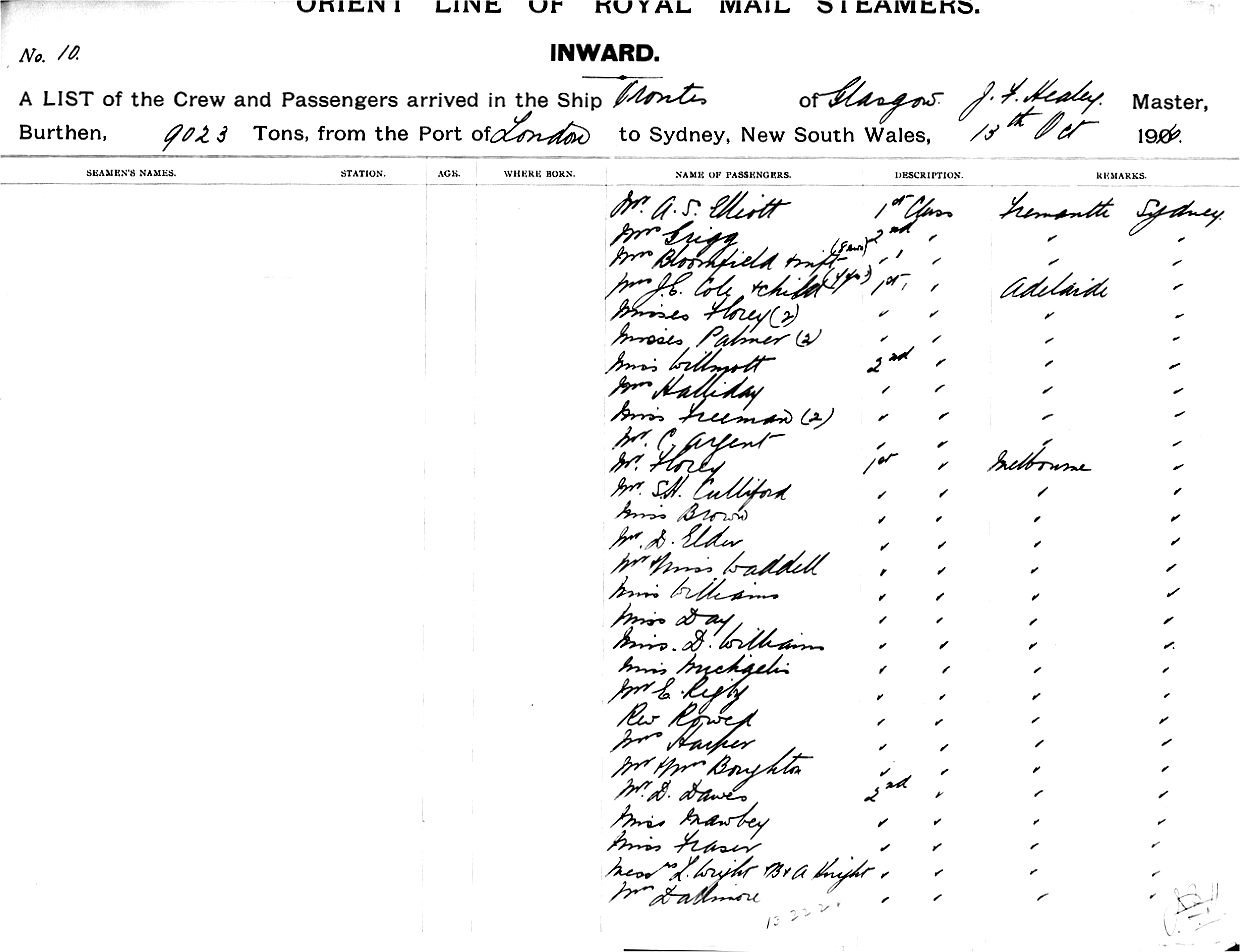 ORIENT LINE OF ROYAL MAIL STEAMERS.
No. 10.
INWARD.
A LIST of the Crew and Passengers arrived in the Ship Orontes of Glasgow. J. F. Healey. Master,
Burthen, 9023 Tons, from the Port of London to Sydney, New South Wales, 13th Oct 190
SEAMEN'S NAMES. STATION. AGE. WHERE BORN. NAME OF PASSENGERS. DESCRIPTION. REMARKS.
Mr. A. S. Elliott 1st Class Fremantle Sydney.
Mrs Grigg 2nd " " "
Mrs Bloomfield & inft " " " "
Mrs J. C. Cole & child (4 yrs) 1st " Adelaide "
Misses Florey (2) " " " "
Misses Palmer (2) " " " "
Miss Willmott 2nd " " "
Mrs Halliday " " " "
Miss Freeman (2) " " " "
Mr. C. Argent " " " "
Mr. Florey 1st " Melbourne "
Mr. S. H. Culliford " " " "
Miss Brown " " " "
Mr. D. Elder " " " "
Mr & Miss Waddell " " " "
Miss Williams " " " "
Miss Day " " " "
Miss. D. Williams " " " "
Miss Michaelis " " " "
Mr E. Rigby " " " "
Rev Rowed " " " "
Mrs Harper " " " "
Mr & Mrs Boughton " " " "
Mr. D. Dawes 2nd " " "
Miss Mawbey " " " "
Miss Fraser " " " "
Messrs L. Wright & B & A Knight " " " "
Mrs Dallimore " " " "
13222.